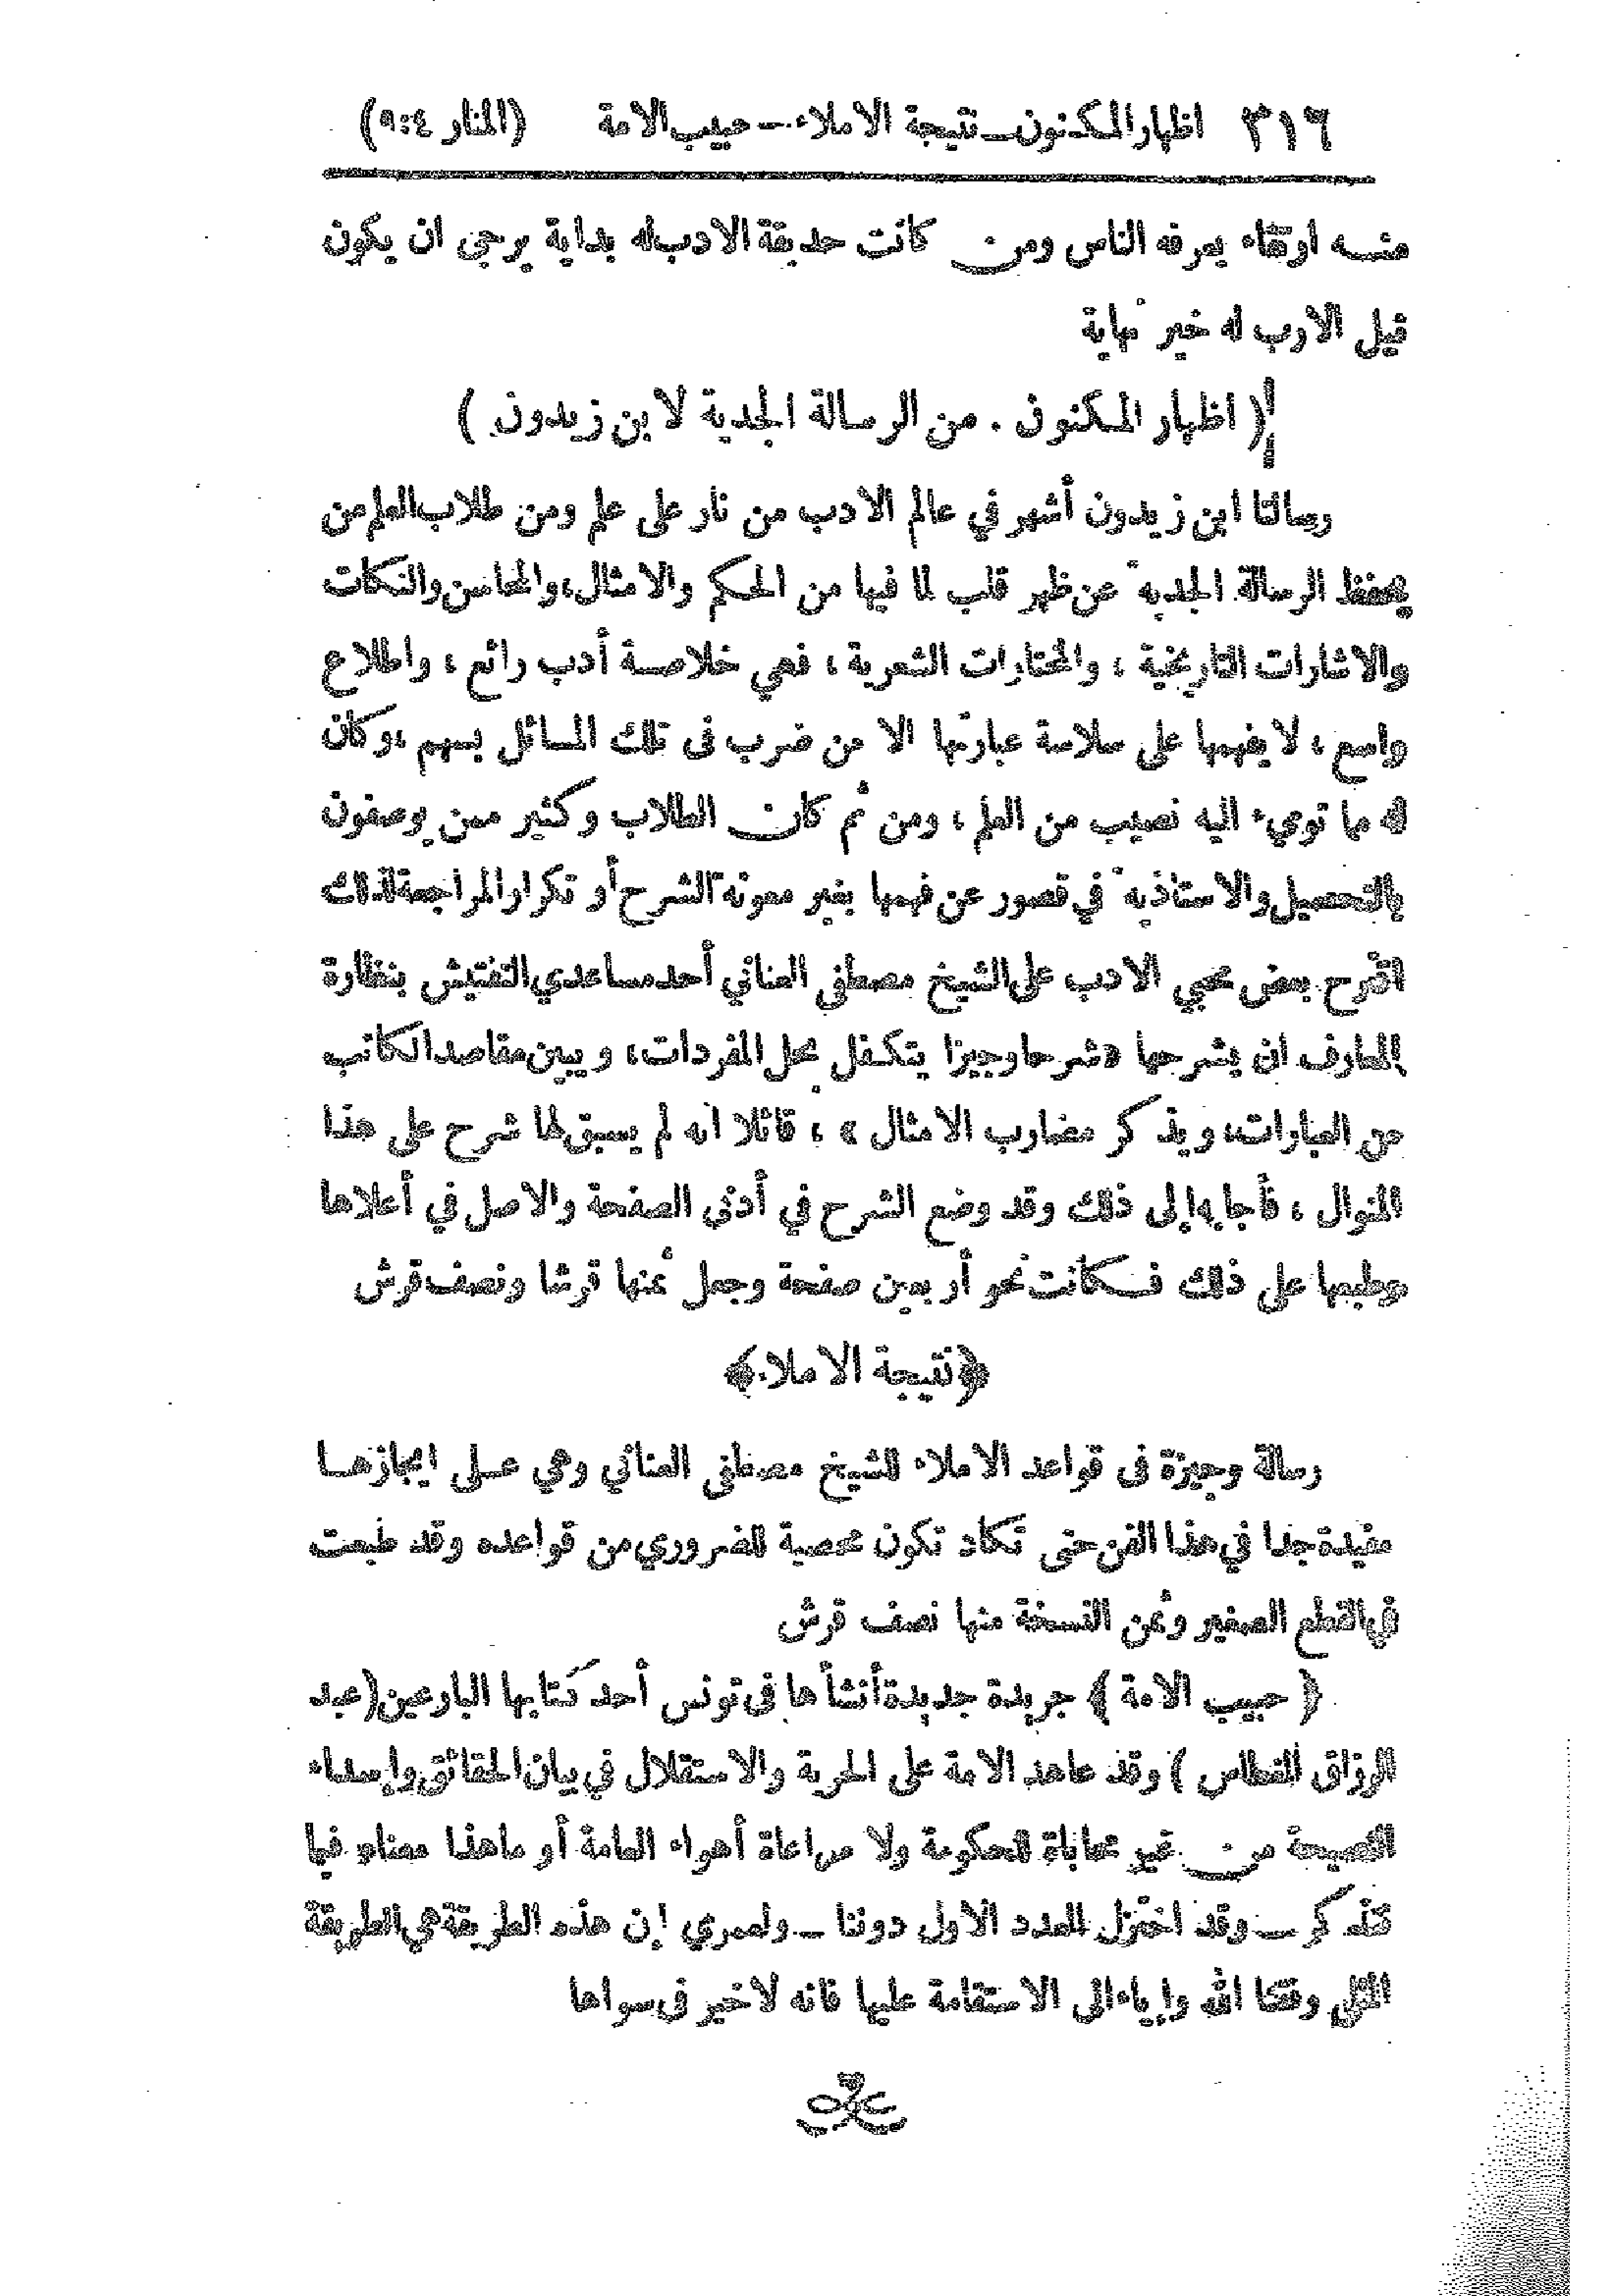 ٣١٦ اظهار المكنون ــ نتيجة الاملاء ــ حبيب الامة (المنار ٤:٩)
منـه ارتقاء يعرفه الناس ومن كانت حديقة الادب له بداية يرجى ان يكون
نيل الارب له خير نهاية
( اظهار المكنون . من الرسالة الجدية لابن زيدون )
رسالتا ابن زيدون أشهر في عالم الادب من نار على علم ومن طلاب العلم من
يحفظ الرسالة الجدية عن ظهر قلب لما فيها من الحكم والامثال، والمحاسن والنكات
والاشارات التاريخية ، والمختارات الشعرية ، فهي خلاصـة أدب رائع ، واطلاع
واسع ، لا يفهمها على سلاسة عبارتها الا من ضرب فى تلك المسائل بسهم ، وكان
له مما تومىء اليه نصيب من العلم ، ومن ثم كان الطلاب وكثير ممن يوصفون
بالتحصيل والاستاذية في قصور عن فهمها بغير معونة الشرح أو تكرار المراجعة لذلك
اقترح بعض محبي الادب على الشيخ مصطفى العناني أحد مساعدي التفتيش بنظارة
المعارف ان يشرحها «شرحا وجيزا يتكفل بحل المفردات، ويبين مقاصد الكاتب
من العبارات، ويذكر مضارب الامثال » ، قائلا انه لم يسبق لها شرح على هذا
المنوال ، فأجابه إلى ذلك وقد وضع الشرح في أدنى الصفحة والاصل في أعلاها
وطبعها على ذلك فـكانت نحو أربعين صفحة وجعل ثمنها قرشا ونصف قرش
﴿نتيجة الاملاء﴾
رسالة وجيزة فى قواعد الاملاء للشيخ مصطفى العناني وهي عـلى ايجازهـا
مفيدة جدا في هذا الفن حتى تكاد تكون محصية للضروري من قواعده وقد طبعت
في القطع الصغير وثمن النسخة منها نصف قرش
﴿ حبيب الامة ﴾ جريدة جديدة أنشأها فى تونس أحد كتابها البارعين (عبد
الرزاق الغطاس ) وقد عاهد الامة على الحرية والاستقلال في بيان الحقائق وإسداء
النصيحة من غير محاباة للحكومة ولا مراعاة أهواء العامة أو ماهذا معناه فيما
نتذكر ــ وقد اختزل العدد الاول دوننا ــ ولعمري إن هذه الطريقة هي الطريقة
المثلى وفقنا الله وإياه الى الاستقامة عليها فانه لا خير فى سواها